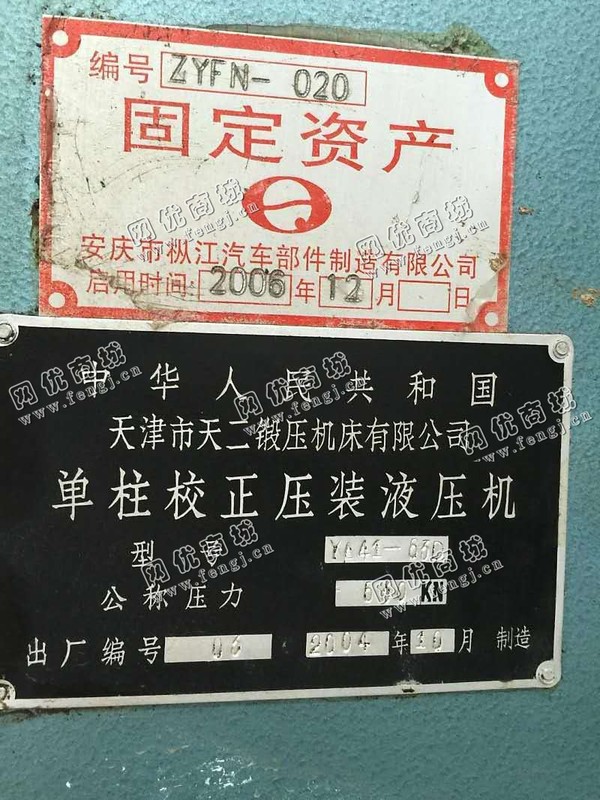 编号 ZYFN- 020
固定资产
安庆市枞江汽车部件制造有限公司
启用时间: 2006 年 12 月 日
中华人民共和国
天津市天二锻压机床有限公司
单柱校正压装液压机
型号
公称压力 KN
出厂编号 06 2004 年 10 月 制造
网优商城
www.fengj.cn
网优商城
www.fengj.cn
网优商城
www.fengj.cn
网优商城
www.fengj.cn
网优商城
www.fengj.cn
网优商城
www.fengj.cn